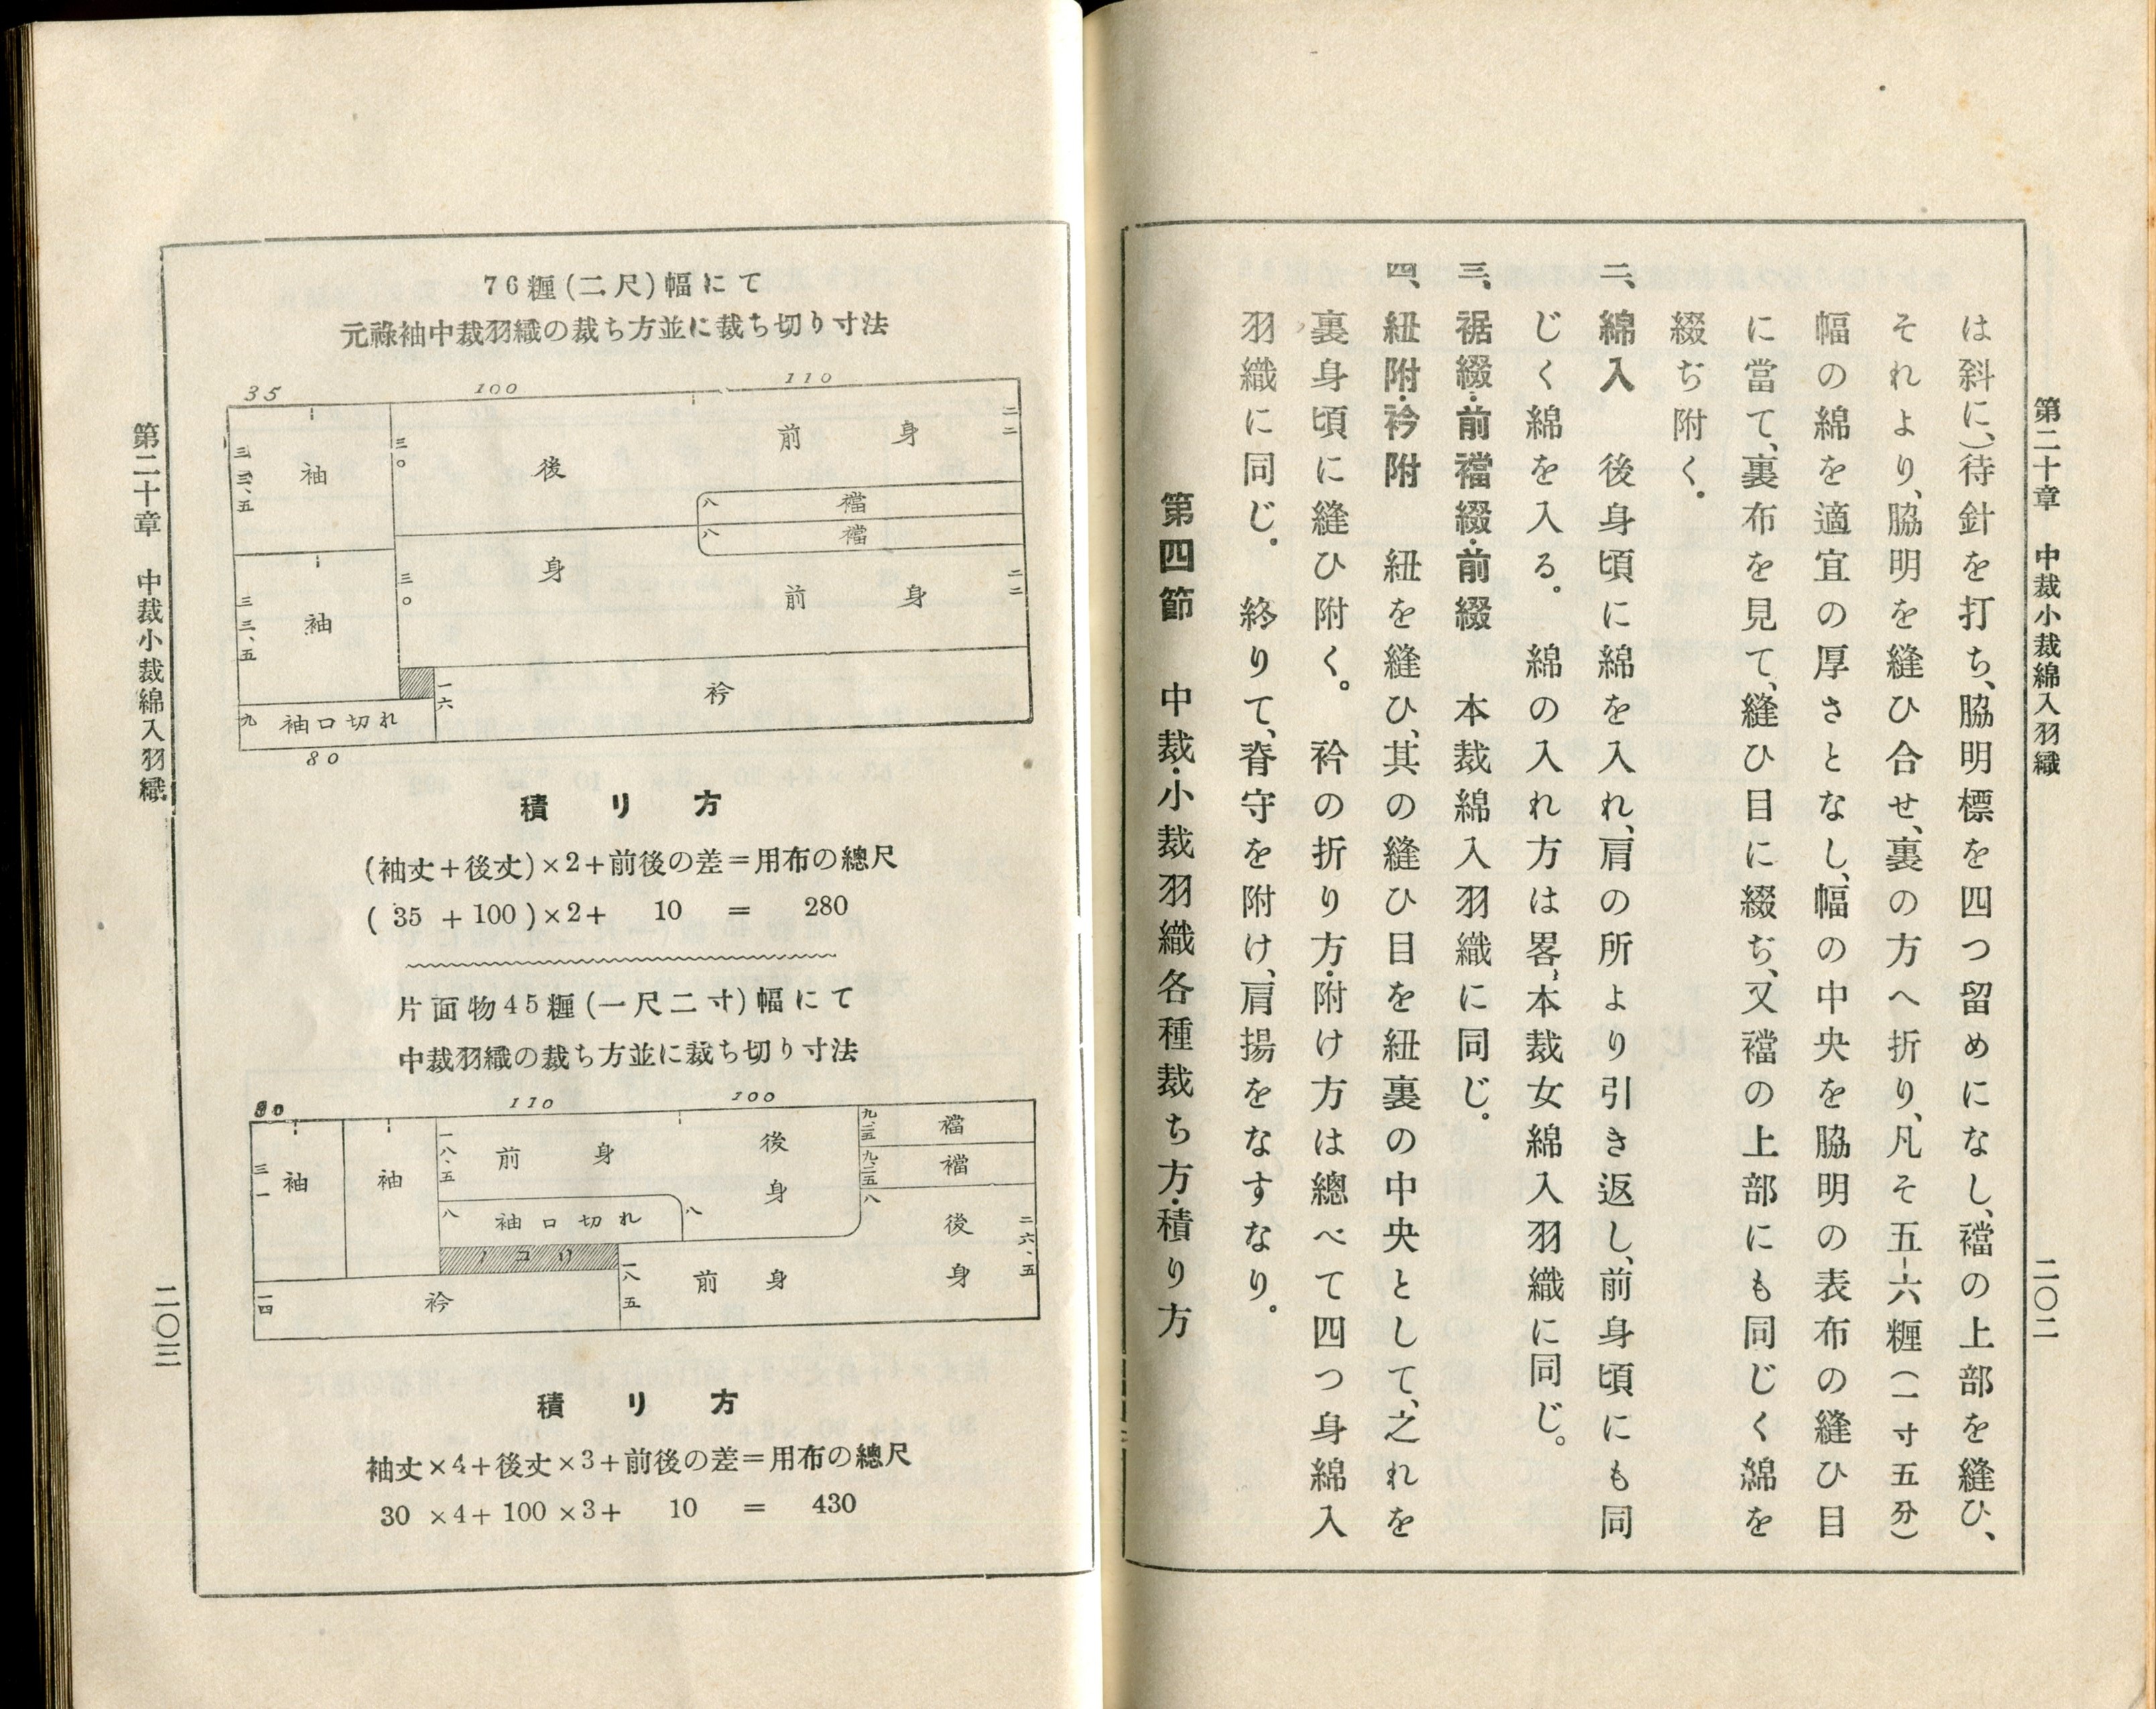 第二十章　中裁小裁綿入羽織
二〇二
は斜に、）待針を打ち、脇明標を四つ留めになし、襠の上部を縫ひ、
それより、脇明を縫ひ合せ、裏の方へ折り、凡そ五―六糎（一寸五分）
幅の綿を適宜の厚さとなし、幅の中央を脇明の表布の縫ひ目
に當て、裏布を見て、縫ひ目に綴ぢ、又襠の上部にも同じく綿を
綴ぢ附く。
二、綿入　後身頃に綿を入れ、肩の所より引き返し、前身頃にも同
じく綿を入る。　綿の入れ方は畧、本裁女綿入羽織に同じ。
三、裾綴・前襠綴・前綴　本裁綿入羽織に同じ。
四、紐附・衿附　紐を縫ひ、其の縫ひ目を紐裏の中央として、之れを
裏身頃に縫ひ附く。　衿の折り方・附け方は總べて四つ身綿入
羽織に同じ。　終りて、脊守を附け、肩揚をなすなり。
第四節　中裁・小裁羽織各種裁ち方・積り方
76糎(二尺)幅にて
元祿袖中裁羽織の裁ち方並に裁ち切り寸法
35
100
110
袖
三三、五
三〇
後
前　身
二二
八
襠
八
襠
袖
三三、五
三〇
身
前　身
二二
九
袖口切れ
一六
衿
80
積り方
(袖丈＋後丈)×2＋前後の差＝用布の總尺
( 35 ＋100 )×2＋ 10 ＝ 280
片面物45糎(一尺二寸)幅にて
中裁羽織の裁ち方並に裁ち切り寸法
110
100
袖
三一
袖
一八、五
前　身
後
身
九、二五
襠
九、二五
襠
八
袖口切れ
八
八
後
身
二六、五
ノコリ
一八五
前　身
一四
衿
積り方
袖丈×4＋後丈×3＋前後の差＝用布の總尺
30 ×4＋ 100 ×3＋ 10 ＝ 430
第二十章　中裁小裁綿入羽織
二〇三